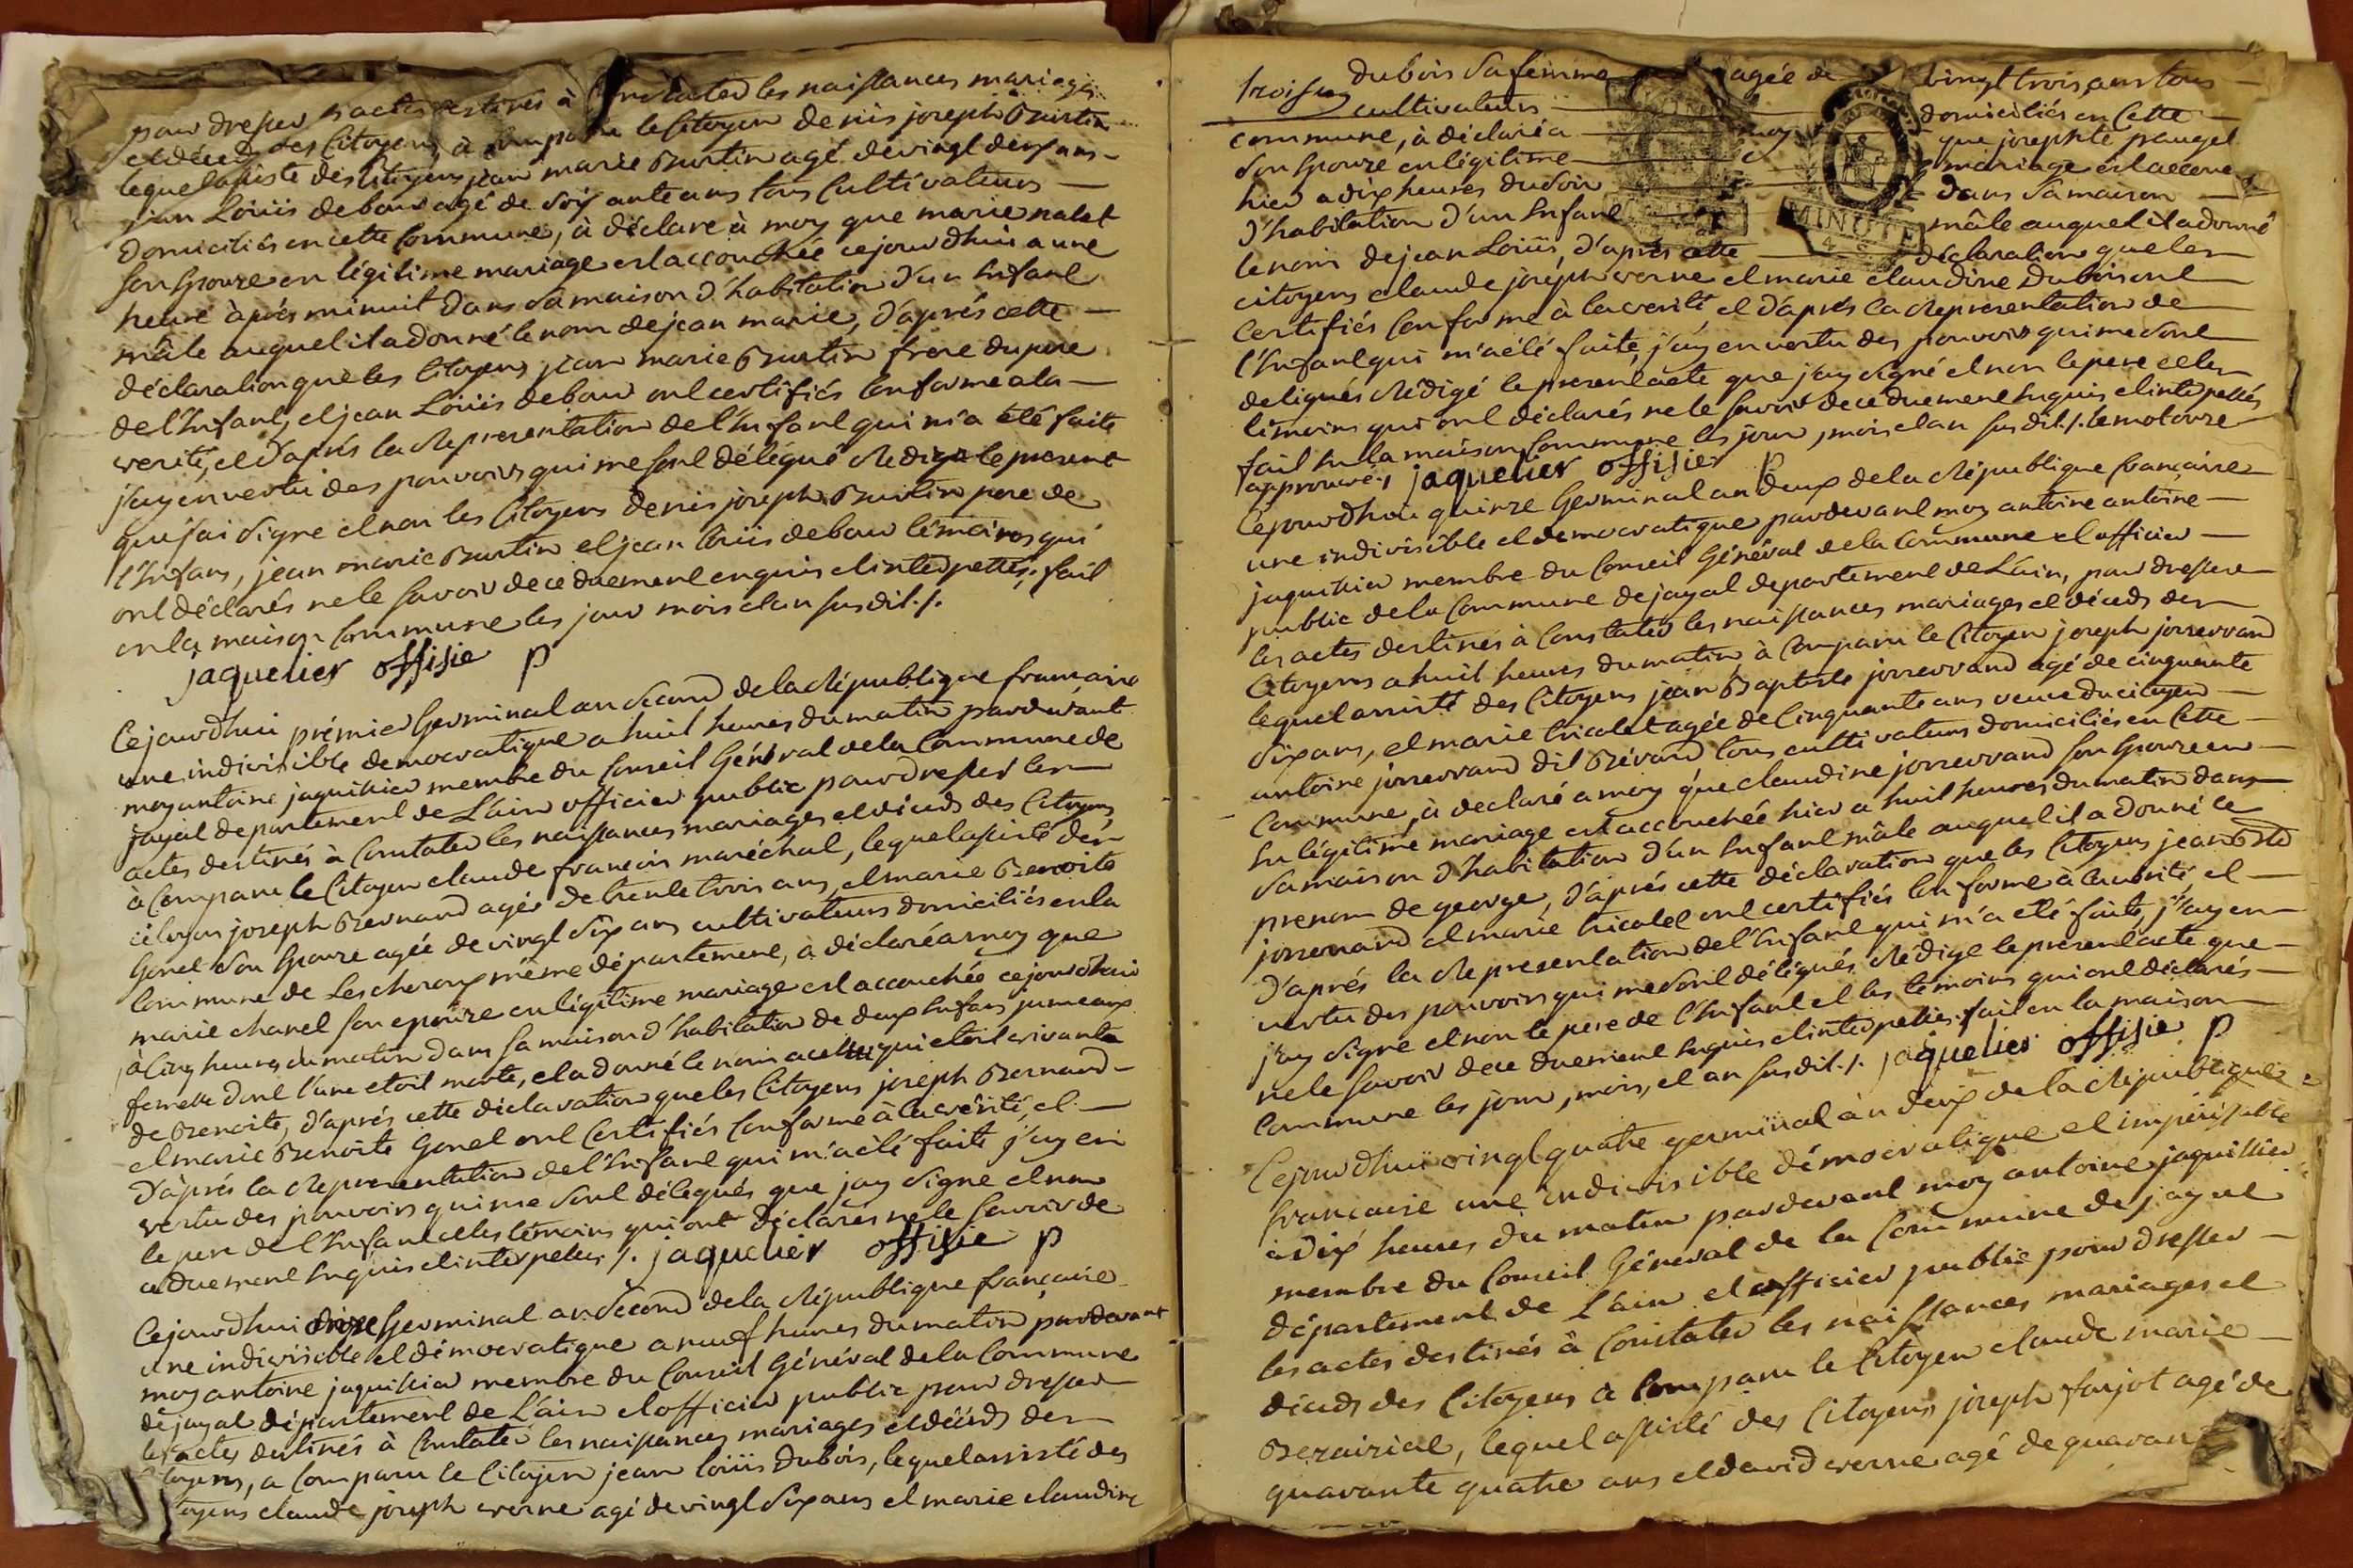 pour dresser les actes destinés à Constater les naissances mariages
et décéd des Citoyens, à Comparu le Citoyen denis joseph Burtin
lequel assiste des Citoyens jean marie Burtin agé de vingt deux ans
jean Loüis debour agé de soixante ans tous Cultivateurs
domiciliés en cette Commune, à déclaré à moy que marie nalet
son Epouze en légitime mariage est accouchée cejourdhui a une
heure àprés minuit dans sa maison d'habitation d'un Enfant
mâle auquel il a donné le nom de jean marie, d'aprés cette
déclaration que les Citoyens jean marie Burtin frere du pere
de l'Enfant, et jean Loüis debour ont certifiés Conforme a la
verité, et d'aprés la Representation de l'Enfant qui m'a été faite
j'ay en vertu des pouvoirs qui me sont délégué Redigé le present
que j'ai signe et non les Citoyens denis joseph Burtin pere de
l'Enfans, jean marie Burtin et jean loüis debour témoins qui
ont déclarés ne le savoir de ce duement enquis et interpettés, fait
en la maison Commune les jour mois et an susdit./.
jaquelier offisie p
Cejourdhui prémier Germinal an second de la République française
une indivisible democratique a huit heures du matin pardevant
moy antoine jaquillier membre du Conseil Général de la Commune de
jayat departement de L'ain officier public pour dresser les
actes destinés à Constater les naissances mariages et décéds des Citoyens
à Comparu le Citoyen claude francois maréchal, lequel assisté des
citoyen joseph Bernard agés de trente trois ans, et marie Benoite
Gonet son Epouze agée de vingt six ans cultivateurs domiciliés en la
Commune de Lescheroux même département, a déclaré a moy que
marie chanel son epouze en légitime mariage est accouchée cejourdhui
à Cinq heures du matin dans sa maison d'habitation de deux Enfans jumeaux
femelle dont l'une etoit morte, et a donné le nom a celle qui etoit vivante
de Benoite, d'aprés cette déclaration que les Citoyens joseph Bernard
et marie Benoite Gonet ont Certifiés Conforme à la vérité, et
d'aprés la Representation de l'Enfant qui m'a été faite j'ay en
vertu des pouvoirs qui me sont délegués que jay signe et non
le pere de l'Enfant et les temoins qui ont déclarés ne le savoir de
ce duement Enquis et interpettés ./. jaquelier offisie p
Cejourdhui onze Germinal an second de la République française
une indivisible et démocratique a neuf heures du matin pardevant
moy antoine jaquillier membre du Conseil Général de la Commune
de jayat département de L'ain et officier public pour dresser
les actes destinés à Constater les naissances mariages et décéds des
Citoyens, a Comparu le Citoyen jean loüis Dubois, lequel assisté des
citoyens claude joseph verne agé de vingt six ans et marie claudine
dubois sa femme agée de vingt trois ans tous
troisun
cultivateurs domiciliés en Cette
commune, à déclaré a moy que josephte paugel
son Epouze en légitime mariage est accouchée
hier a dix heures du soir dans sa maison
d'habitation d'un Enfant mâle auquel il a donné
le nom de jean Loüis, d'aprés cette déclaration que les
MINUTE
citoyens claude joseph verne et marie claudine Dubois ont
Certifiés Conforme à la verité et d'aprés la Representation de
l'Enfant qui m'a été faite, j'ay en vertu des pouvoirs qui me sont
deligués Rédigé le present acte que j'ay signé et non le pere et les
témoins qui ont déclarés ne le savoir de ce duement Enquis et interpettés
fait En la maison Commune les jour, mois et an susdit ./. le mot onze
approuvé ./. jaquelier offisier p
Cejourdhui quinze Germinal an deux de la République française
une indivisible et democratique pardevant moy antoine antoine
jaquillier membre du Conseil Général de la Commune et officier
public de la Commune de jayat departement de L'ain, pour dresser
les actes destinés à Constater les naissances mariages et décéds des
Citoyens a huit heures du matin, à Comparu le Citoyen joseph josserand
lequel assisté des Citoyens jean Baptiste josserrand agé de cinquante
six ans, et marie tricolet agée de Cinquante ans veuve du citoyen
antoine josserrand dit Bévand tous cultivateurs domiciliés en Cette
Commune, à declaré a moy que claudine josserrand son Epouze en
En légitime mariage est accouchée hier a huit heures du matin dans
sa maison d'habitation d'un Enfant mâle auquel il a donné le
prenom de george, d'aprés cette déclaration que les Citoyens jean Bte
josserrand et marie tricolet ont certifiés Conforme à la verité, et
d'aprés la Representation de l'Enfant qui m'a eté faite, j'ay en
vertu des pouvoirs qui me sont délégués Rédigé le present acte que
j'ay signé et non le pere de l'Enfant et les témoins qui ont déclarés
ne le savoir de ce duement Enquis et interpettés, fait en la maison
Commune les jour, mois, et an susdit ./. jaquelier offisie p
Cejourdhui vingt quatre germinal àn deux de la République
francaise une indivisible démocratique et impérissable
à dix heures du matin pardevant moy antoine jaquillier
membre du Conseil Géneral de la Commune de jayat
département de L'ain et officier public pour dresser
les actes destinés à Constater les naissances mariages et
décéds des Citoyens à Comparu le Citoyen claude marie
lequel assisté des Citoyens joseph farjot agé de
quarante quatre ans et david verne agé de quaran